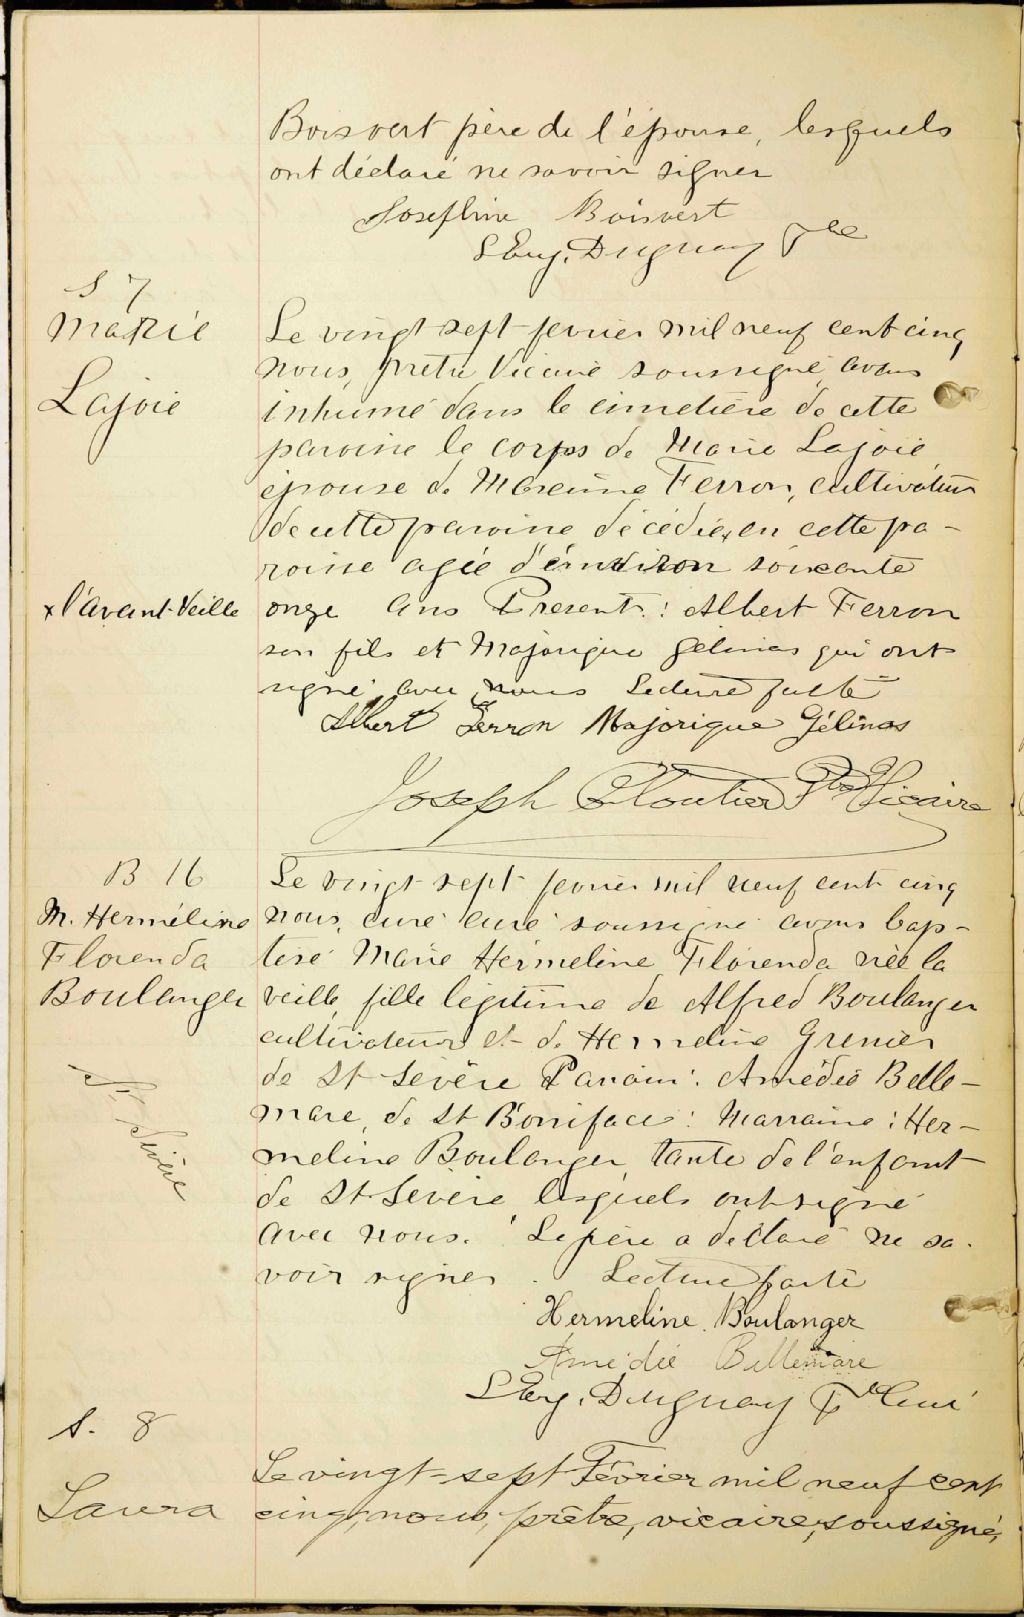 Boisvert père de l'épouse, lesquels
ont déclaré ne savoir signer
Josephine Boisvert
S Eug. Duguay Ptre
S 7
Marie
Lajoie
Le vingt-sept fevrier mil neuf cent cinq
nous, pretre Vicaire soussigné, avons
inhumé dans le cimetière de cette
paroisse le corps de Marie Lajoie
épouse de Maxime Ferron, cultivateur
de cette paroisse décédée x en cette pa-
roisse agée d'environ soixante
x l'avant-Veille
onze ans Present : Albert Ferron
son fils et Majorique Gélinas qui ont
signé avec nous Lecture faite
Albert Ferron Majorique Gélinas
Joseph Cloutier Ptre Vicaire
B 16
M. Herméline
Florenda
Boulanger
St Sévère
Le vingt-sept fevrier mil neuf cent cinq
nous, curé curé soussigné avons bap-
tisé Marie Hermeline Florenda née la
veille, fille légitime de Alfred Boulanger
cultivateur et de Hermeline Grenier
de St Sévère Parain : Amédée Belle-
mare, de St Boniface : Marraine : Her-
meline Boulanger, tante de l'enfant
de St Sévère, lesquels ont signé
avec nous. Le père a déclaré ne sa-
voir signer. Lecture faite
Hermeline Boulanger
Amédée Bellemare
S Eug. Duguay Ptre Curé
S. 8
Laura
Le vingt-sept Février mil neuf cent
cinq, nous, prêtre, vicaire, soussigné,